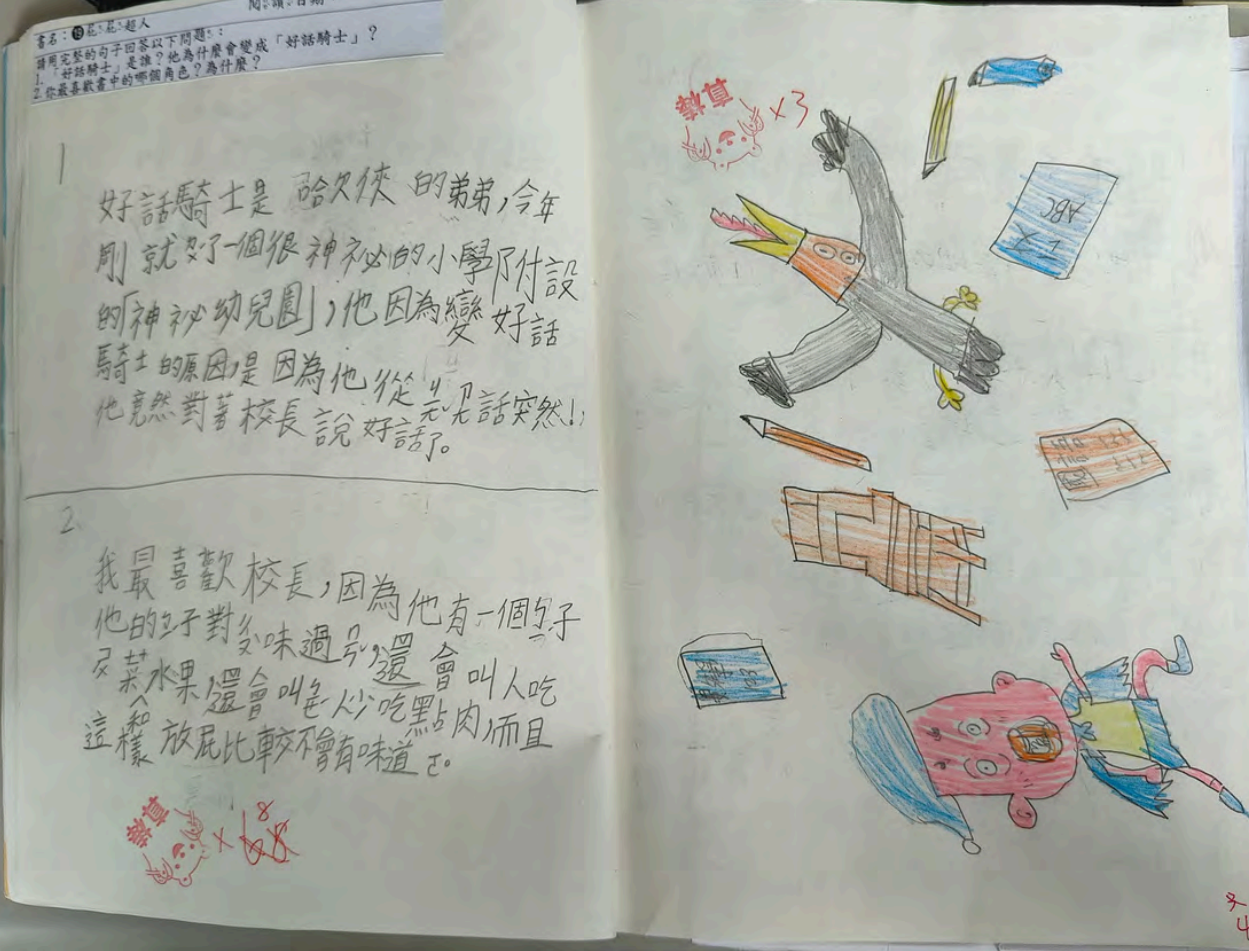 閱讀日期
書名：⑲屁屁超人
請用完整的句子回答以下問題：
1. 「好話騎士」是誰？他為什麼會變成「好話騎士」？
2. 你最喜歡書中的哪個角色？為什麼？
1
好話騎士是 哈欠俠 的弟弟，今年
剛就了一個很神祕的小學附設
的「神祕幼兒園」，他因為變好話
騎士的原因，是因為他從ㄓ話突然！，
他竟然對著校長說好話了。
2.
我最喜歡校長，因為他有一個
他的對味過還會叫人吃
菜水果，還會叫人少吃點肉，而且
這樣放屁比較不會有味道ㄛ。
真棒 ×8
真棒 ×3
ABC